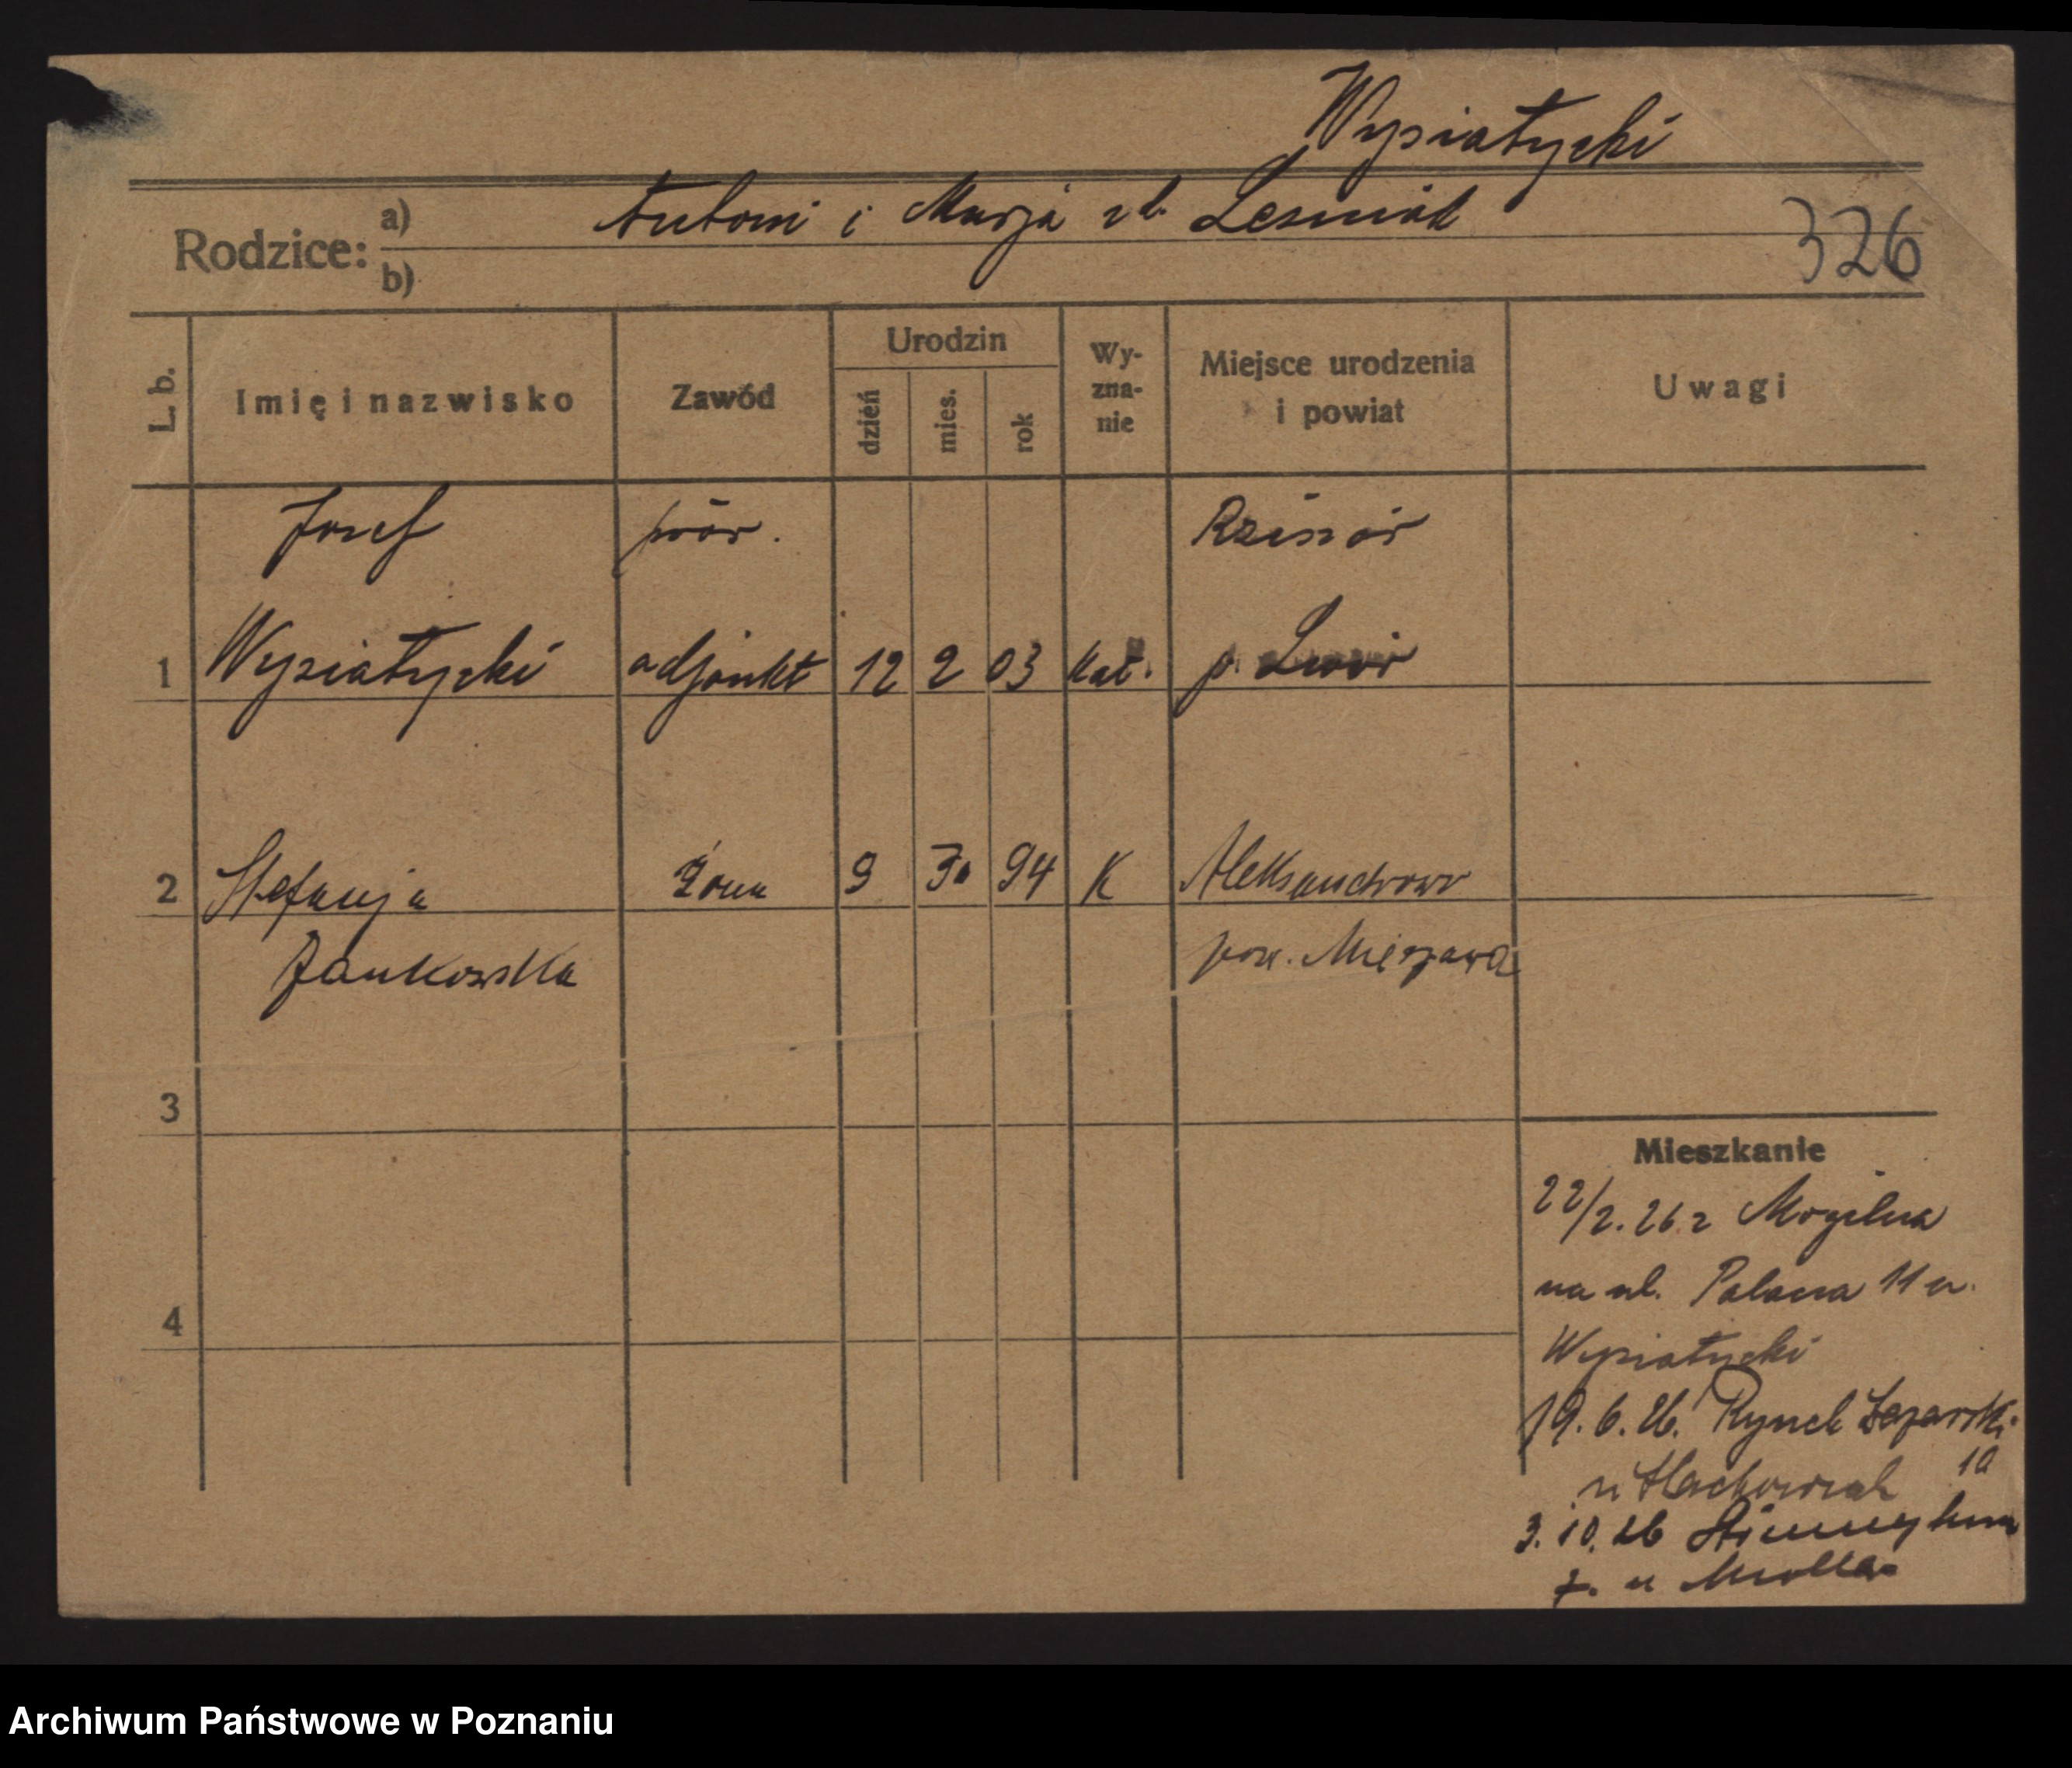 Wysiatycki
Rodzice: a) Antoni i Marja zd. Lesniak
b)
326
L. b.
Imię i nazwisko
Zawód
Urodzin
dzień
mies.
rok
Wy-
zna-
nie
Miejsce urodzenia
i powiat
Uwagi
Josef
Wysiatycki
1 adjunkt 12 2 03 kat. p. Lwów
2 Stefanja Żona 9 94 K Aleksandrowo
Jankowska pow. Mieszawa
3
4
Mieszkanie
22/2. 26 z Mogilna
na ul. 11 u.
Wysiatycki
19. 6. 26. Rynek Łazarski
10
u
3. 10. 26
7. u
Archiwum Państwowe w Poznaniu